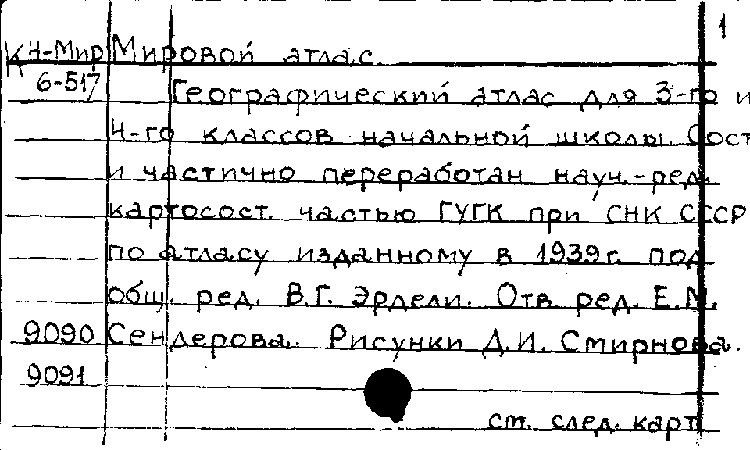 1
К Н-Мир Мировой атлас.
6-517 Географический атлас для 3-го и
4-го классов начальной школы. Сост
и частично переработан науч.-ред.
картосост. частью ГУГК при СНК СССР
по атласу изданному в 1939 г. под
общ. ред. В.Г. Эрдели. Отв. ред. Е.М.
9090 Сендерова. Рисунки Д.И. Смирнова.
9091
см. след. карт